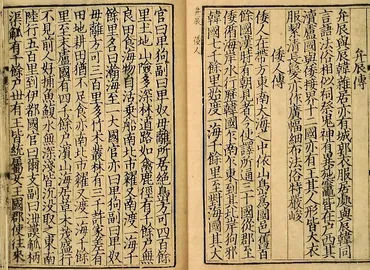 弁辰 倭人
弁辰與辰韓雜居亦有城郭衣服居處與辰韓同
言語法俗相似祠祭鬼神有異施竈皆在戶西其
瀆盧國與倭接界十二國亦有王其人形皆大衣
服絜清長髮亦作廣幅細布法俗特嚴峻
倭人傳
倭人在帶方東南大海之中依山島爲國邑舊百
餘國漢時有朝見者今使譯所通三十國從郡至
倭循海岸水行歷韓國乍南乍東到其北岸狗邪
韓國七千餘里始度一海千餘里至對海國其大
官曰卑狗副曰卑奴母離所居絕島方可四百餘
里土地山險多深林道路如禽鹿徑有千餘戶無
良田食海物自活乗船南北市糴又南渡一海千
餘里名曰瀚海至一大國官亦曰卑狗副曰卑奴
母離方可三百里多竹木叢林有三千許家差有
田地耕田猶不足食亦南北市糴又渡一海千餘
里至末盧國有四千餘戶濱山海居草木茂盛行
不見前人好捕魚鰒水無深淺皆沈没取之東南
陸行五百里到伊都國官曰爾支副曰泄謨觚柄
渠觚有千餘戶丗有王皆統屬女王國郡使往來